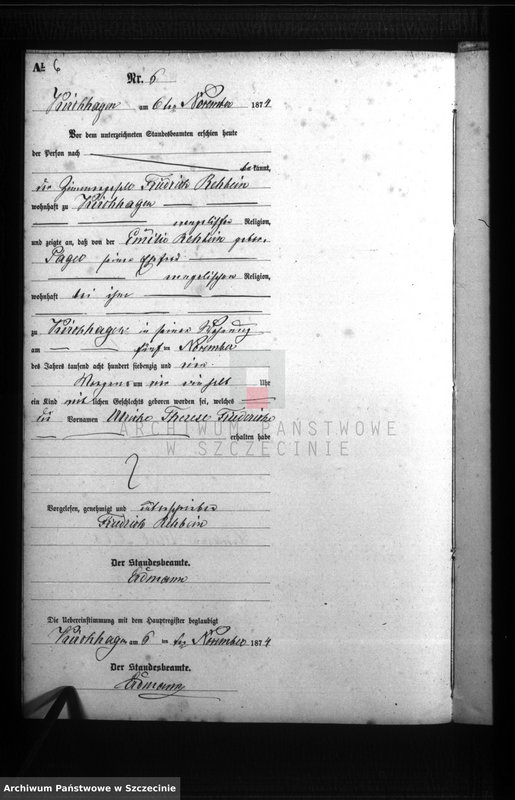 A. 6
Nr. 6
Kirchhagen am 6ten November 1874
Vor dem unterzeichneten Standesbeamten erschien heute
der Person nach
bekannt,
der Friedrich Rehbein
wohnhaft zu Kirchhagen
evangelischer Religion,
und zeigte an, daß von der Emilie Rehbein geborne
seiner Ehefrau
evangelischer Religion,
wohnhaft bei ihm
zu Kirchhagen in seiner Wohnung
am fünften November
des Jahres tausend acht hundert siebenzig und vier
Morgens um ein halb Uhr
ein Kind weiblichen Geschlechts geboren worden sei, welches
die Vornamen Ulrike Therese Friederike
erhalten habe
Vorgelesen, genehmigt und unterschrieben
Friedrich Rehbein
Der Standesbeamte.
Erdmann
Die Uebereinstimmung mit dem Hauptregister beglaubigt
Kirchhagen am 6 ten November 1874
Der Standesbeamte.
Erdmann
ARCHIWUM PAŃSTWOWE
W SZCZECINIE
Archiwum Państwowe w Szczecinie